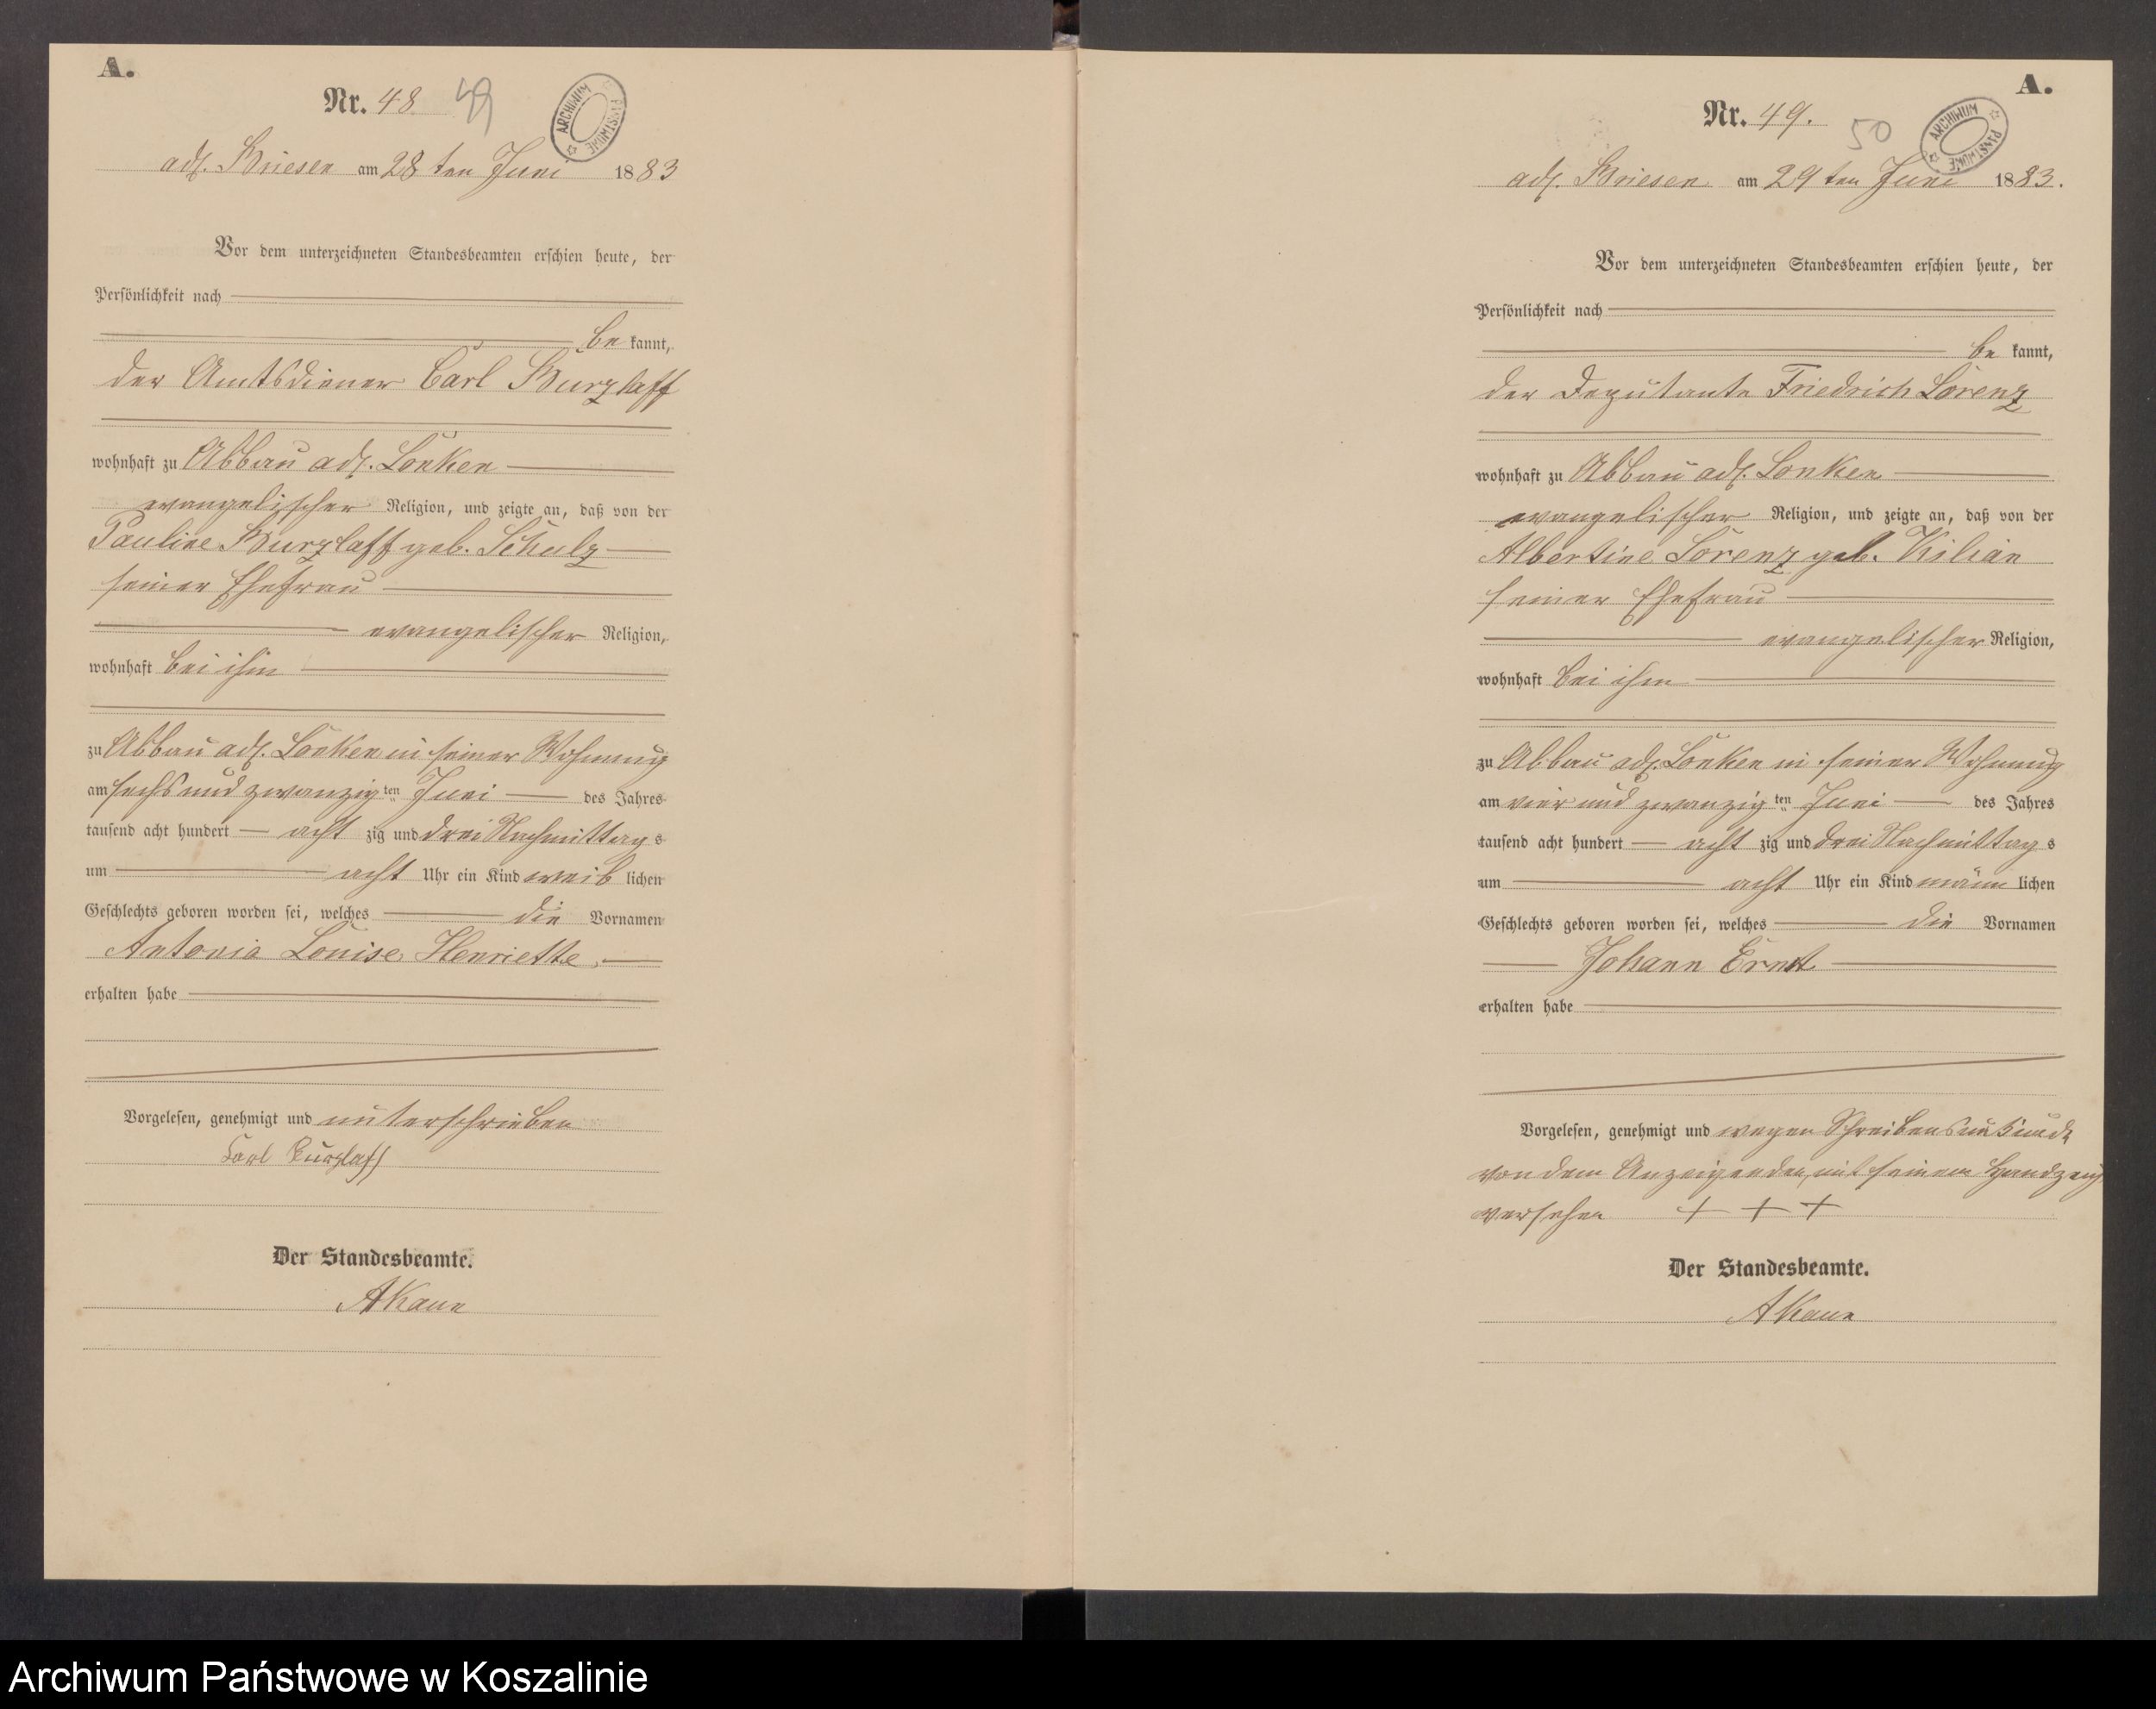 A.
Nr. 48. 49
ARCHIWUM PAŃSTWOWE
adl. Briesen am 28 ten Juni 1883
Vor dem unterzeichneten Standesbeamten erschien heute, der
Persönlichkeit nach
be kannt,
der Amtsdiener Carl Burzlaff
wohnhaft zu Abbau adl. Lonken
evangelischer Religion, und zeigte an, daß von der
Pauline Burzlaff geb. Schulz
seiner Ehefrau
evangelischer Religion,
wohnhaft bei ihm
zu Abbau adl. Lonken in seiner Wohnung
am sechs und zwanzig ten Juni des Jahres
tausend acht hundert acht zig und drei Nachmittag s
um acht Uhr ein Kind weib lichen
Geschlechts geboren worden sei, welches die Vornamen
Antonia Louise Henriette
erhalten habe
Vorgelesen, genehmigt und unterschrieben
Carl Burzlaff
Der Standesbeamte.
A
A.
Nr. 49. 50
ARCHIWUM PAŃSTWOWE
adl. Briesen am 29 ten Juni 1883.
Vor dem unterzeichneten Standesbeamten erschien heute, der
Persönlichkeit nach
be kannt,
der Deputante Friedrich Lorenz
wohnhaft zu Abbau adl. Lonken
evangelischer Religion, und zeigte an, daß von der
Albertine Lorenz geb. Kilian
seiner Ehefrau
evangelischer Religion,
wohnhaft bei ihm
zu Abbau adl. Lonken in seiner Wohnung
am vier und zwanzig ten Juni des Jahres
tausend acht hundert acht zig und drei Nachmittag s
um acht Uhr ein Kind männ lichen
Geschlechts geboren worden sei, welches die Vornamen
Johann Ernst
erhalten habe
Vorgelesen, genehmigt und wegen Schreibensunkunde
von dem Anzeigenden mit seinem Handzeich
versehen + + +
Der Standesbeamte.
A
Archiwum Państwowe w Koszalinie